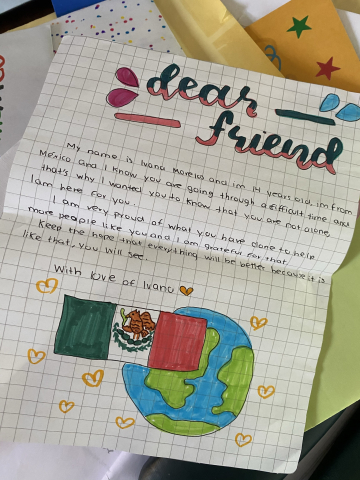 dear
friend
My name is Ivana Morelos and im 14 years old, im from
México and I know you are going through a difficult time and
that's why I wanted you to know that you are not alone,
I am here for you.
I am very proud of what you have done to help
more people like you and I am grateful for that.
Keep the hope that everything will be better because it is
like that, you will see.
With love of Ivana